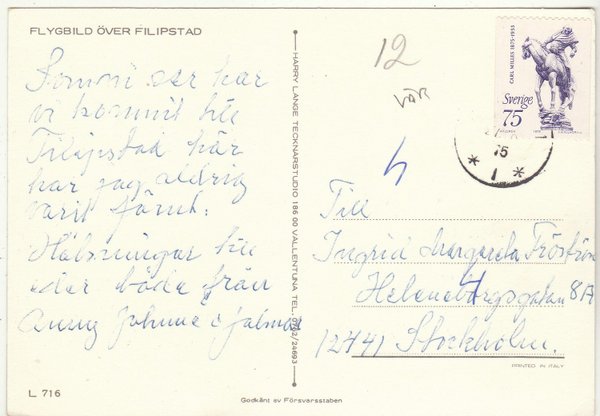 FLYGBILD ÖVER FILIPSTAD
Som ni ser har
vi kommit till
Filipstad här
har jag aldrig
varit förut.
Hälsningar till
eder båda från
L 716
HARRY LANGE TECKNARSTUDIO 186 00 VALLENTUNA TEL.
Godkänt av Försvarsstaben
12
VÄR
CARL MILLES 1875-1955
Sverige
75
75
* 1 *
Till
Ingrid Margareta
Heleneborgsgatan 8A
Stockholm.
PRINTED IN ITALY